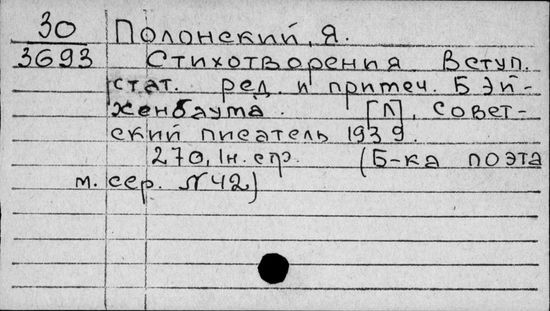 30 Полонский, Я.
3693 Стихотворения Вступ.
стат. ред. и примеч. Б Эй-
хенбаума. [Л], Совет-
ский писатель 1939.
270, 1н. стр. (Б-ка поэта
м. сер. №42)